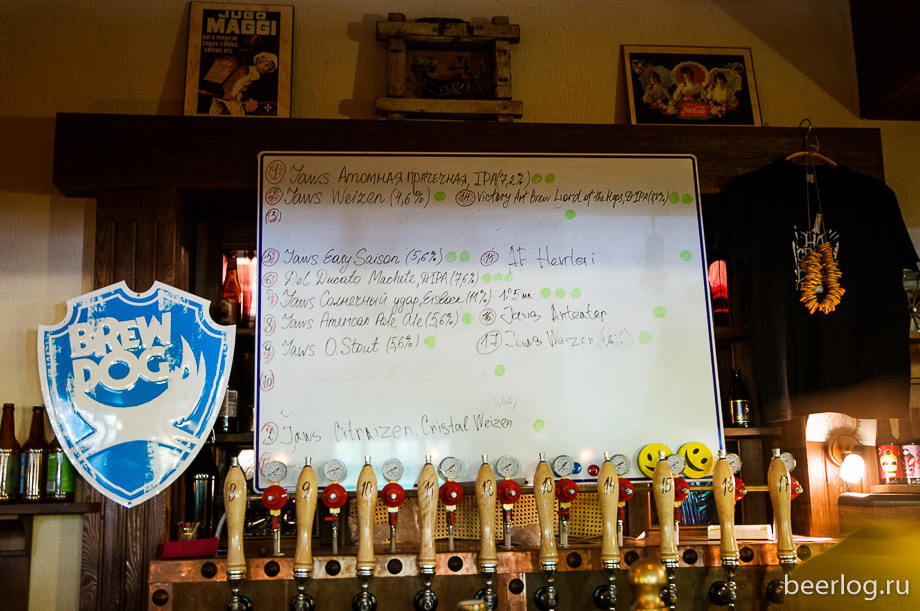 JUGO
MAGGI
para mejorar
sopas, caldos
salsas, etc.
Coca-Cola
1 Jaws Атомная прачечная, IPA (7,2%)
2 Jaws Weizen (4,6%)
14 Victory Art Brew Lord of the Hops, DIPA
3
5 Jaws Easy Saison (5,6%)
15 AF Hentai
6 Del Ducato Machete, DIPA (7,6%)
Jaws Солнечный удар, Eisbock (11%)
8 Jaws American Pale Ale (5,6%)
16 Jaws Anteater
9 Jaws O. Stout (5,6%)
17 Jaws Weizen (4,6%)
10
Jaws Citraizen, Cristal Weizen
BREW
DOG
8 9 10 11 12 13 14 15 16 17
beerlog.ru